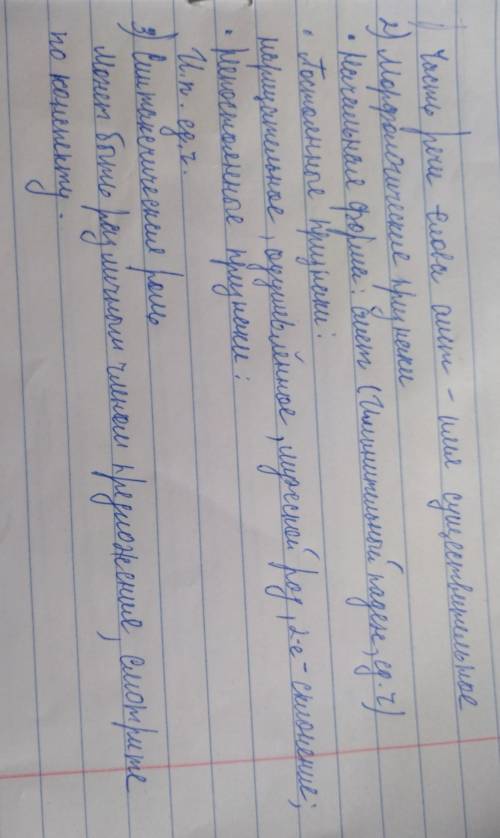 1) Часть речи слова аист - имя существительное
2) Морфологические признаки
• Начальная форма: аист (Именительный падеж, ед.ч)
• Постоянное признаки:
нарицательное, одушевлённое, мужской род, 2-е - склонение;
• Непостоянное признаки:
И.п. ед.ч.
3) Синтаксическия роль
Может быть различным членом предложения, смотрите
по конспекту.